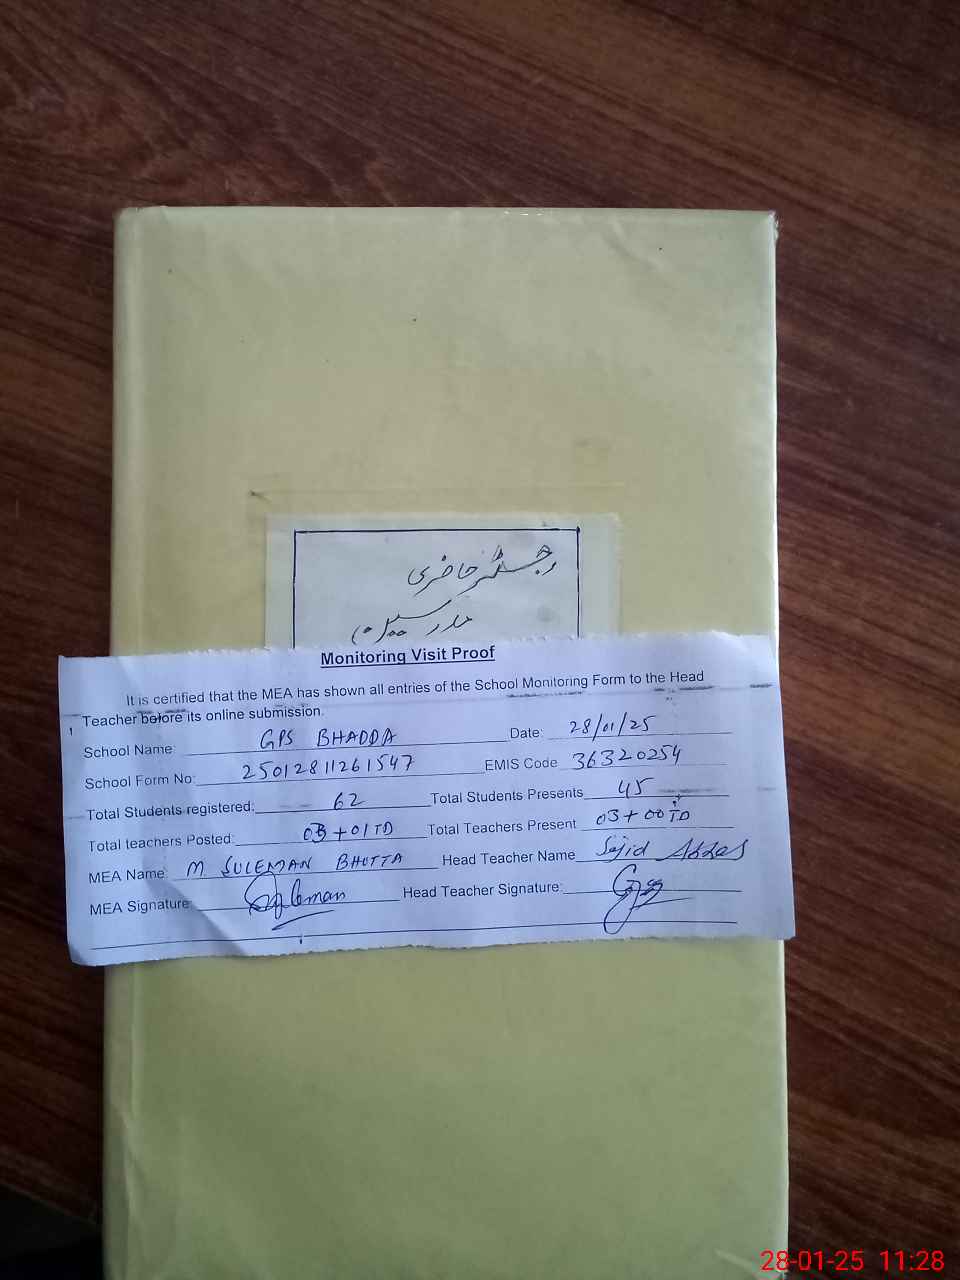 رجسٹر حاضری
مدرسین
Monitoring Visit Proof
It is certified that the MEA has shown all entries of the School Monitoring Form to the Head
Teacher before its online submission.
School Name: GPS BHADDA Date: 28/01/25
School Form No: 25012811261547 EMIS Code 36320254
Total Students registered: 62 Total Students Presents 45
Total teachers Posted: 03+01TD Total Teachers Present 03+00TD
MEA Name: M SULEMAN BHUTTA Head Teacher Name Sajid Abbas
MEA Signature: Suleman Head Teacher Signature:
28-01-25 11:28